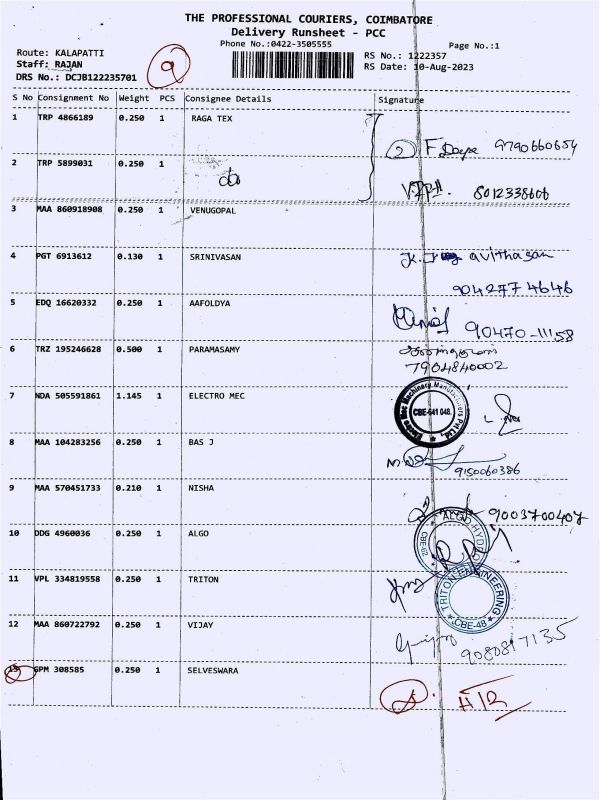 THE PROFESSIONAL COURIERS, COIMBATORE
Delivery Runsheet - PCC
Phone No.:0422-3505555
Page No.:1
Route: KALAPATTI
RS No.: 1222357
Staff: RAJAN
RS Date: 10-Aug-2023
DRS No.: DCJB122235701
S No Consignment No Weight PCS Consignee Details Signature
1 TRP 4866189 0.250 1 RAGA TEX
2 9790660654
2 TRP 5899031 0.250 1
8012338606
3 MAA 860918908 0.250 1 VENUGOPAL
4 PGT 6913612 0.130 1 SRINIVASAN
9042774646
5 EDQ 16620332 0.250 1 AAFOLDYA
90470-11158
6 TRZ 195246628 0.500 1 PARAMASAMY
7904840002
7 NDA 505591861 1.145 1 ELECTRO MEC
Electro Mec Machinery Manufacturers Pvt Ltd.
CBE-641 048.
8 MAA 104283256 0.250 1 BAS J
9150060386
9 MAA 570451733 0.210 1 NISHA
9003700407
10 DDG 4960036 0.250 1 ALGO
ALGO HYDRO
11 VPL 334819558 0.250 1 TRITON
TRITON ENGINEERING
CBE-48
12 MAA 860722792 0.250 1 VIJAY
9080817135
13 GPM 308585 0.250 1 SELVESWARA